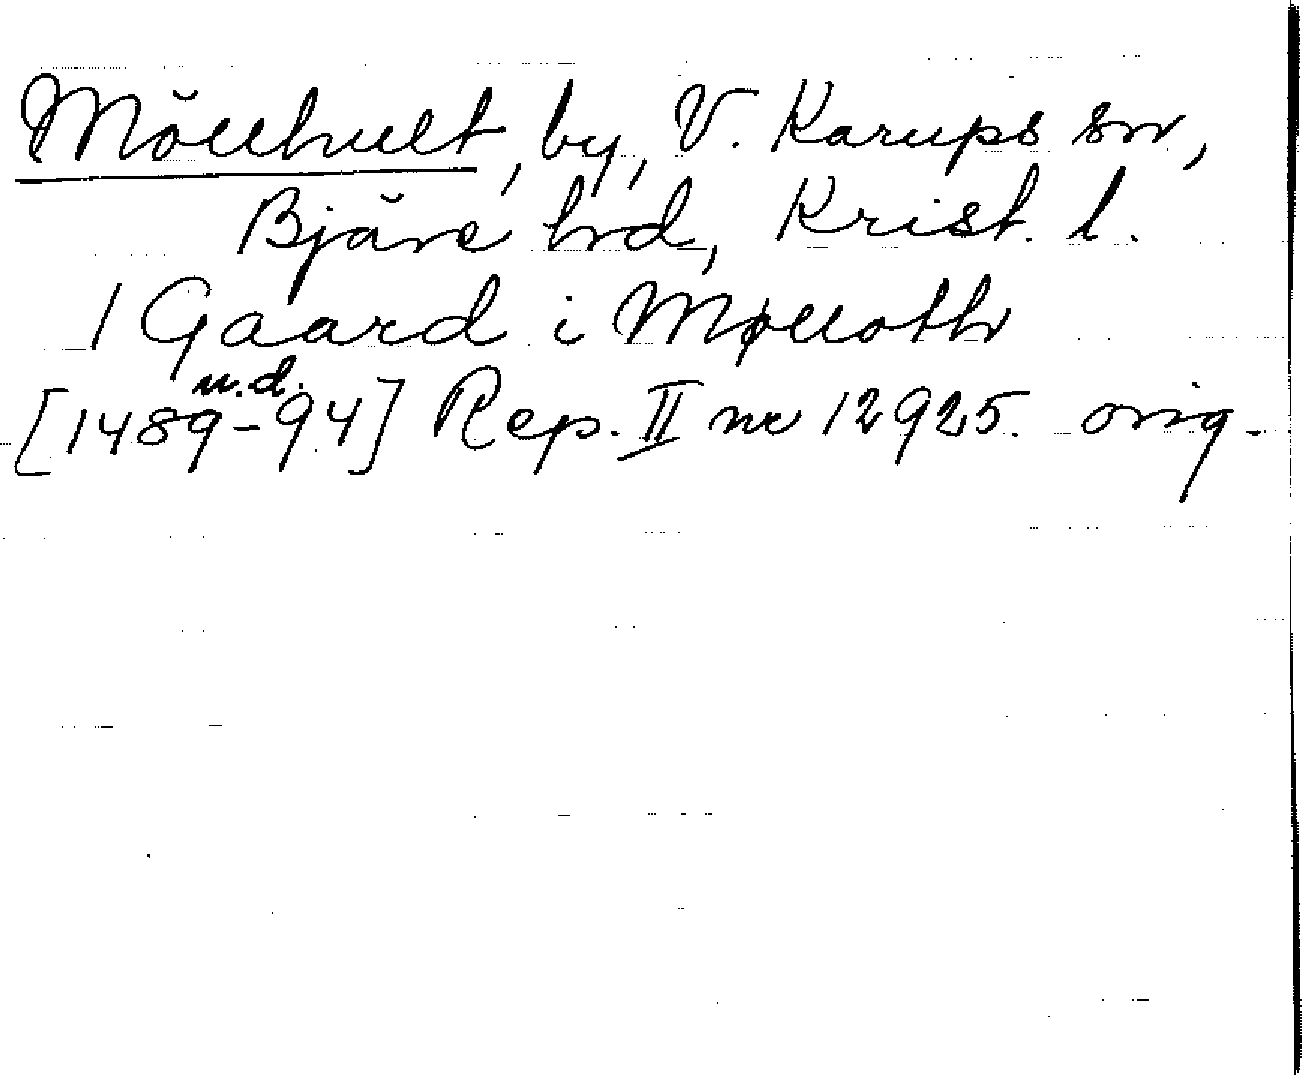 Möllhult, by, V. Karups sn,
Bjäre hrd, Krist. l.
1 Gaard i Mølloth
u.d.
[1489-94] Rep. II nr 12925. orig.